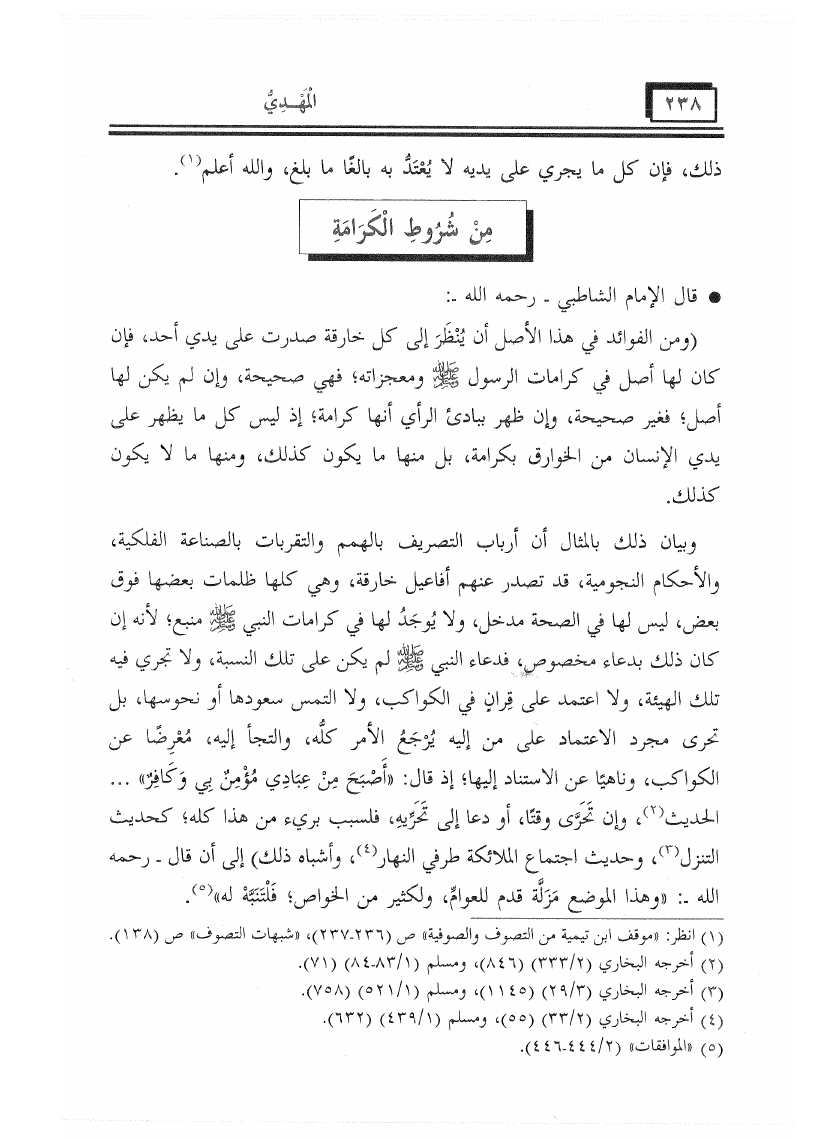 ٢٣٨
الْمَهْـدِيُّ
ذلك، فإن كل ما يجري على يديه لا يُعْتَدُّ به بالغًا ما بلغ، والله أعلم(١).
مِنْ شُرُوطِ الْكَرَامَةِ
● قال الإمام الشاطبي ـ رحمه الله ـ:
(ومن الفوائد في هذا الأصل أن يُنْظَرَ إلى كل خارقة صدرت على يدي أحد، فإن
كان لها أصل في كرامات الرسول ﷺ ومعجزاته؛ فهي صحيحة، وإن لم يكن لها
أصل؛ فغير صحيحة، وإن ظهر ببادئ الرأي أنها كرامة؛ إذ ليس كل ما يظهر على
يدي الإنسان من الخوارق بكرامة، بل منها ما يكون كذلك، ومنها ما لا يكون
كذلك.
وبيان ذلك بالمثال أن أرباب التصريف بالهمم والتقربات بالصناعة الفلكية،
والأحكام النجومية، قد تصدر عنهم أفاعيل خارقة، وهي كلها ظلمات بعضها فوق
بعض، ليس لها في الصحة مدخل، ولا يُوجَدُ لها في كرامات النبي ﷺ منبع؛ لأنه إن
كان ذلك بدعاء مخصوص، فدعاء النبي ﷺ لم يكن على تلك النسبة، ولا تجري فيه
تلك الهيئة، ولا اعتمد على قِرانٍ في الكواكب، ولا التمس سعودها أو نحوسها، بل
تحرى مجرد الاعتماد على من إليه يُرْجَعُ الأمر كلُّه، والتجأ إليه، مُعْرِضًا عن
الكواكب، وناهيًا عن الاستناد إليها؛ إذ قال: «أَصْبَحَ مِنْ عِبَادِي مُؤْمِنٌ بِي وَكَافِرٌ» ...
الحديث(٢)، وإن تَحَرَّى وقتًا، أو دعا إلى تَحَرِّيهِ، فلسبب بريء من هذا كله؛ كحديث
التنزل(٣)، وحديث اجتماع الملائكة طرفي النهار(٤)، وأشباه ذلك) إلى أن قال ـ رحمه
الله ـ: «وهذا الموضع مَزَلَّة قدم للعوامِّ، ولكثير من الخواص؛ فَلْتَنَبَّهْ له»(٥).
(١) انظر: «موقف ابن تيمية من التصوف والصوفية» ص (٢٣٦-٢٣٧)، «شبهات التصوف» ص (١٣٨).
(٢) أخرجه البخاري (٣٣٣/٢) (٨٤٦)، ومسلم (٨٣/١-٨٤) (٧١).
(٣) أخرجه البخاري (٢٩/٣) (١١٤٥)، ومسلم (٥٢١/١) (٧٥٨).
(٤) أخرجه البخاري (٣٣/٢) (٥٥)، ومسلم (٤٣٩/١) (٦٣٢).
(٥) «الموافقات» (٤٤٤/٢-٤٤٦).